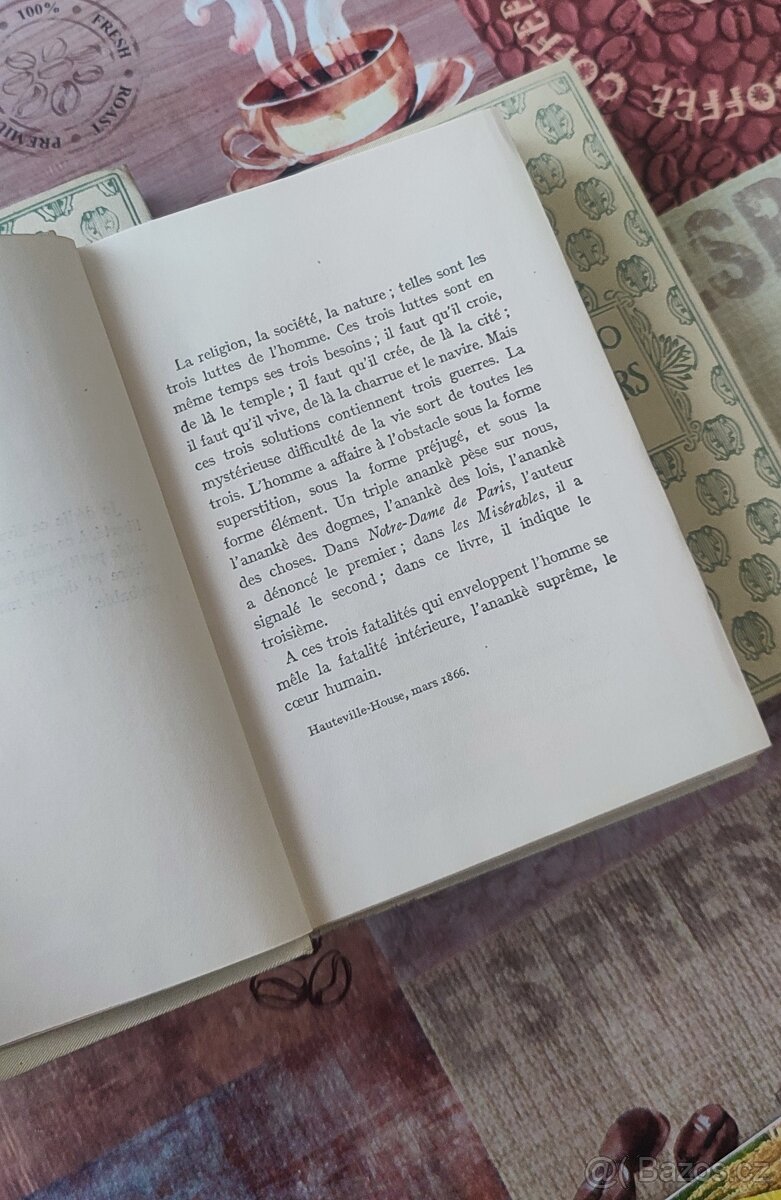 100%
FRESH
ROAST
PREMIU
COFFEE
COFFEE
ESP
O
RS
La religion, la société, la nature ; telles sont les
trois luttes de l'homme. Ces trois luttes sont en
même temps ses trois besoins ; il faut qu'il croie,
de là le temple ; il faut qu'il crée, de là la cité ;
il faut qu'il vive, de là la charrue et le navire. Mais
ces trois solutions contiennent trois guerres. La
mystérieuse difficulté de la vie sort de toutes les
trois. L'homme a affaire à l'obstacle sous la forme
superstition, sous la forme préjugé, et sous la
forme élément. Un triple anankè pèse sur nous,
l'anankè des dogmes, l'anankè des lois, l'anankè
des choses. Dans Notre-Dame de Paris, l'auteur
a dénoncé le premier ; dans les Misérables, il a
signalé le second ; dans ce livre, il indique le
troisième.
A ces trois fatalités qui enveloppent l'homme se
mêle la fatalité intérieure, l'anankè suprême, le
cœur humain.
Hauteville-House, mars 1866.
ESPRES
Bazos.cz